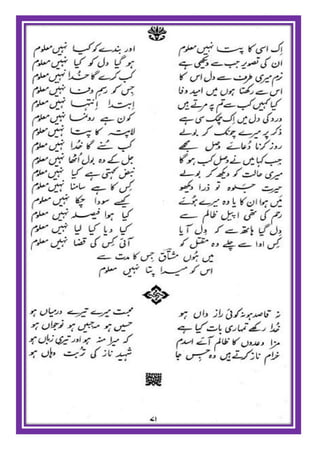 اِک اسی کا پتا نہیں معلوم اور بندے کو کیا نہیں معلوم
ان کی تصویر جب سے دیکھی ہے ہو گیا دل کو کیا نہیں معلوم
نرم میری طرف سے دل اس کا کب کرے گا خدا نہیں معلوم
اس سے رکھتا ہوں میں امید وفا جس کو رسمِ وفا نہیں معلوم
کیا کہیں کب سے تم پہ مرتے ہیں ابتدا انتہا نہیں معلوم
درد کی دل میں اِک چمک سی ہے کون ہے رونما نہیں معلوم
ذکر پر میرے چونک کر بولے لاپتہ کا پتا نہیں معلوم
روز کرنا دُعائے وصل مجھے کب سُنے گا خدا نہیں معلوم
جب کہا میں نے وصل کب ہو گا جل کے وہ بول اُٹھا نہیں معلوم
میری حالت کو دیکھ کر بولے نبض کہتی ہے کیا نہیں معلوم
حیرت جلوہ تو ذرا دیکھو کس کا ہے سامنا نہیں معلوم
میں ہوا ان کا یا وہ میرے ہوئے کیسے سودا چکا نہیں معلوم
رحم کی تھی اپیل ظالم سے کیا ہوا فیصلہ نہیں معلوم
دل گیا ہاتھ سے کہ دل آیا کیا دیا کیا لیا نہیں معلوم
کس ادا سے چلے وہ مقتل کو آئی کس کی قضا نہیں معلوم
میں ہوں مشتاق جس کا مدت سے
اس کو میرا پتا نہیں معلوم
نہ قاصد ہو نہ کوئی راز داں ہو محبت میرے تیرے درمیاں ہو
خدا رکھے تمہاری بات کیا ہے حسیں ہو مہ جبیں ہو نوجواں ہو
مزا وعدوں کا ظالم آئے اسدم کہ میرا منہ ہو اور تیری زباں ہو
خرام ناز کرتے ہیں وہ جس جا شہید ناز کی تربت وہاں ہو
۷۱